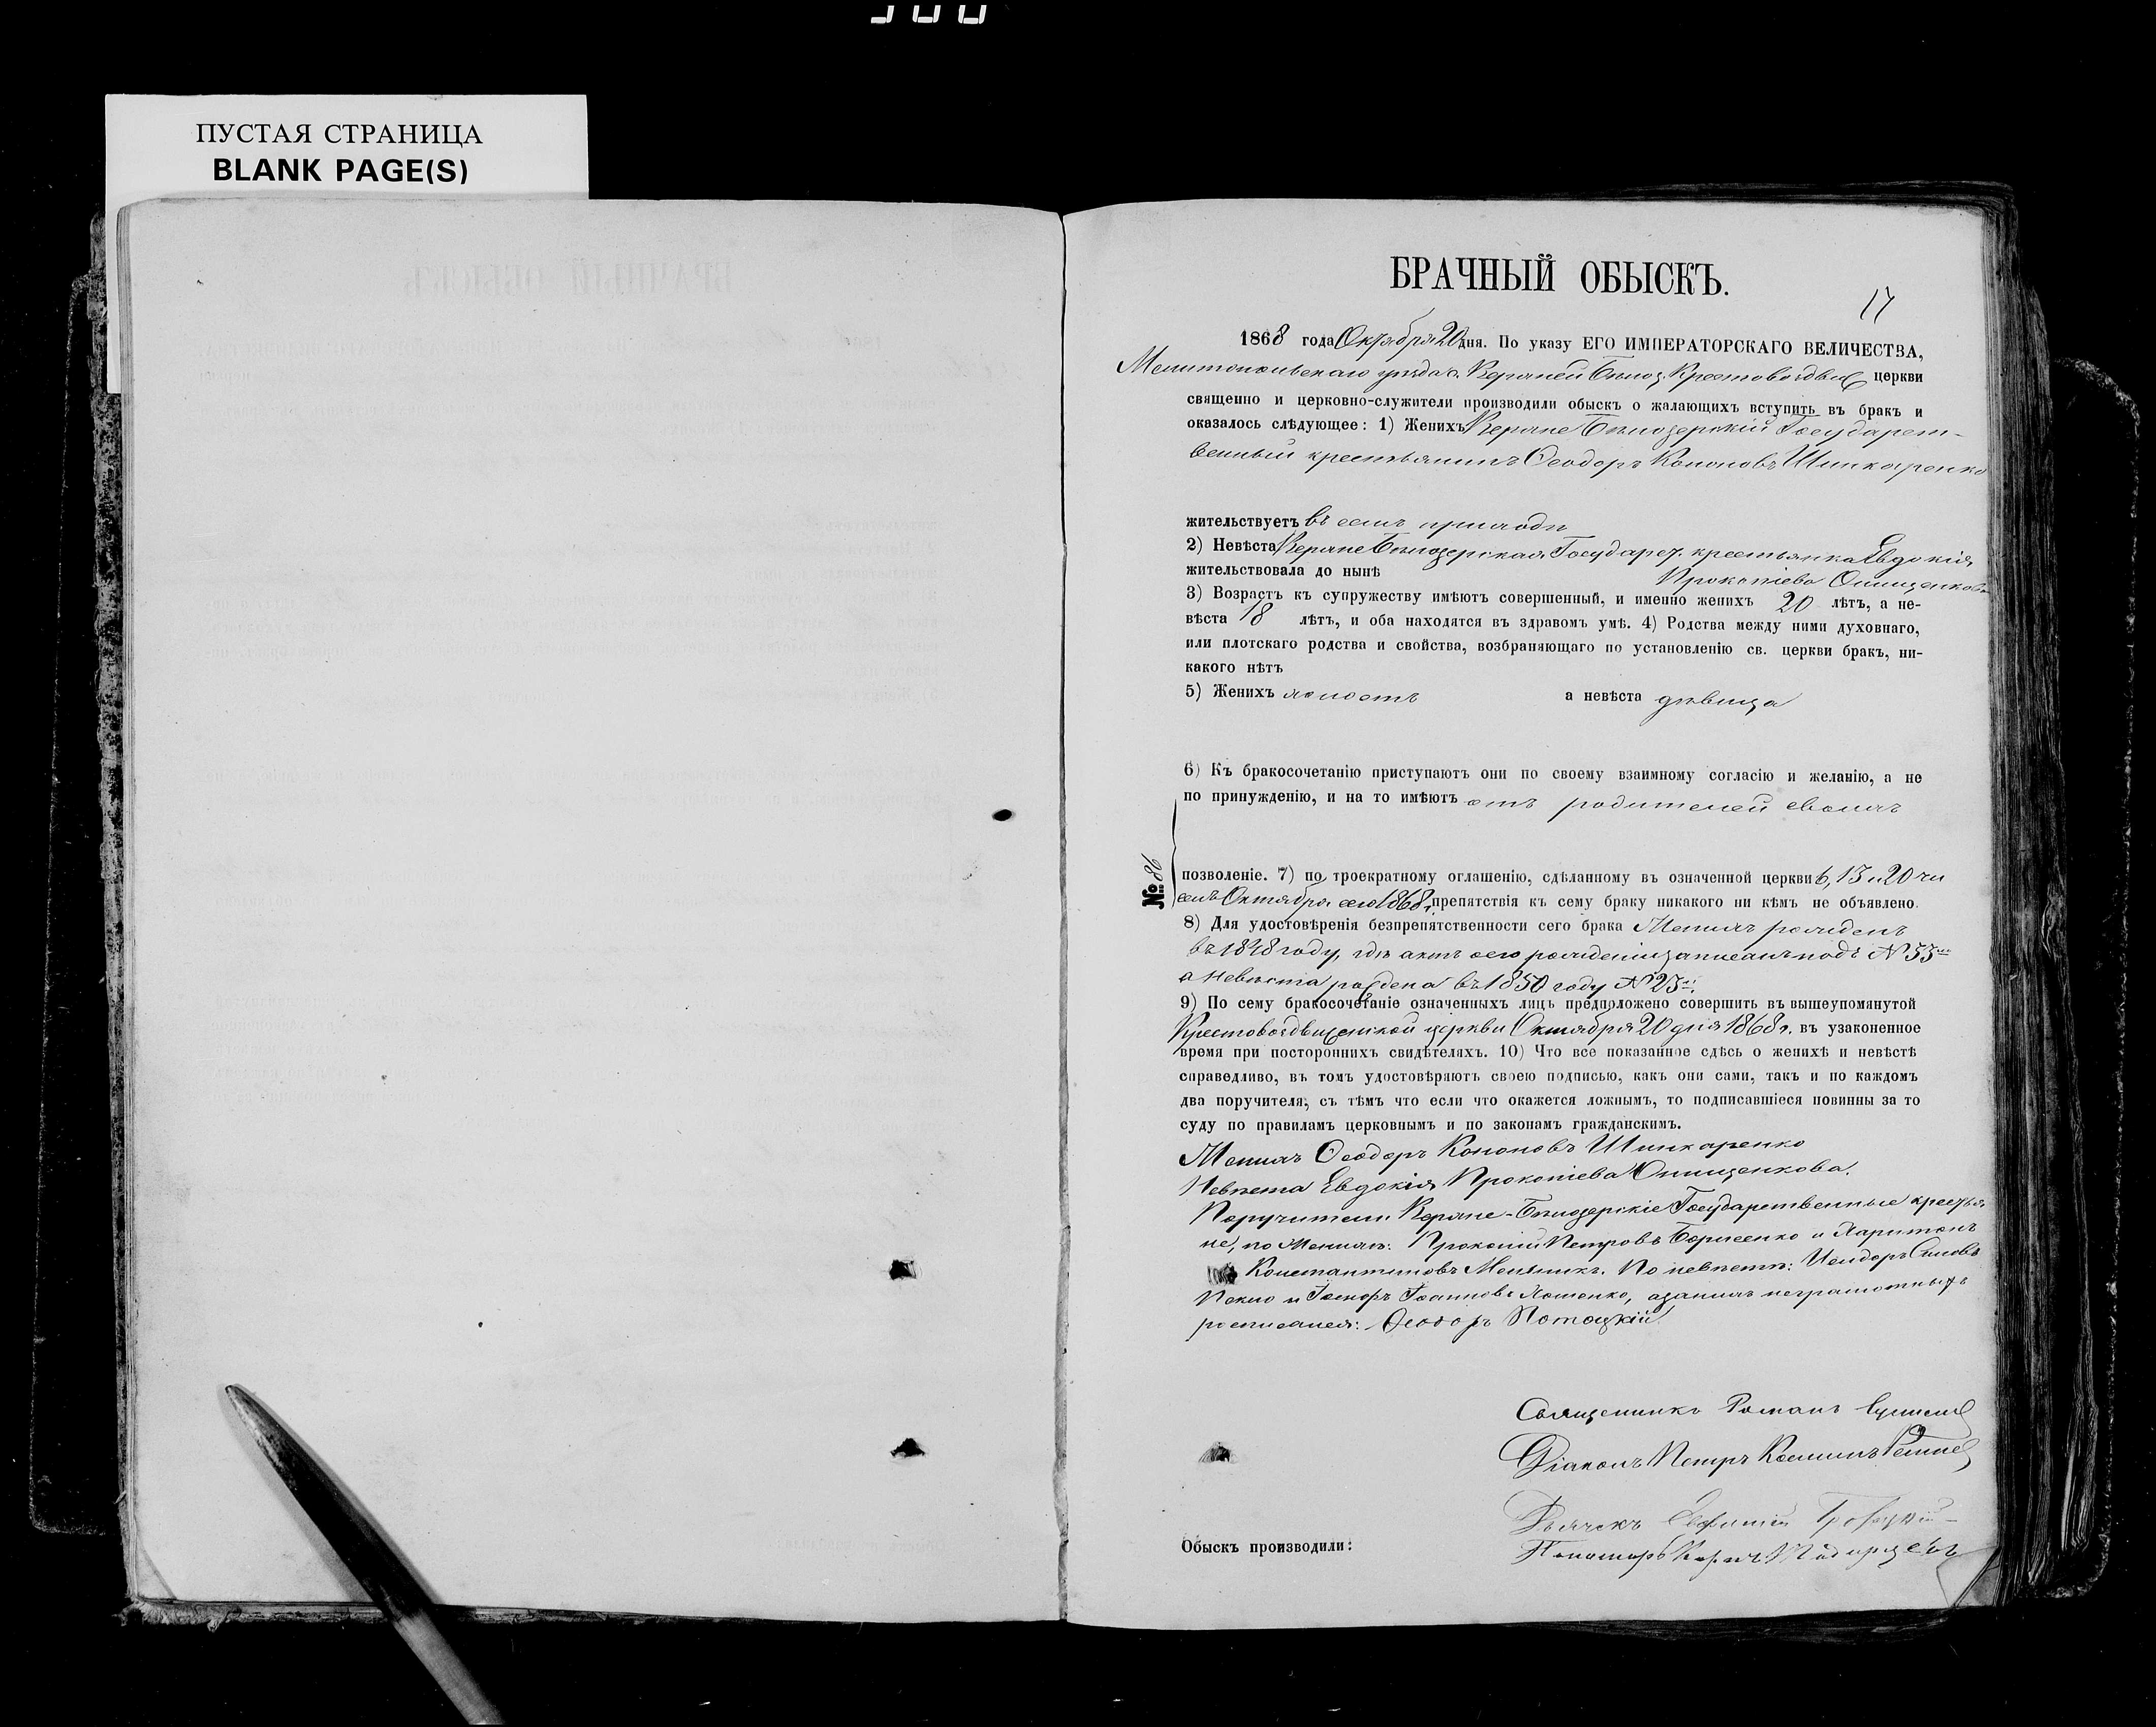 ПУСТАЯ СТРАНИЦА
BLANK PAGE(S)
БРАЧНЫЙ ОБЫСКЪ.
17
1868 года Октября 20 дня. По указу ЕГО ИМПЕРАТОРСКАГО ВЕЛИЧЕСТВА,
Мелитопольскаго уѣзда с. Верхней Бѣлоз. Крестовоздвиж церкви
священно и церковно-служители производили обыскъ о жалающихъ вступить въ бракъ и
оказалось слѣдующее: 1) Женихъ Верхне Бѣлозерскій Государст-
венный крестьянинъ Ѳеодоръ Кононовъ Шинкаренко
жительствуетъ въ семъ приходѣ
2) Невѣста Верхне Бѣлозерская Государст. крестьянка Евдокія
жительствовала до нынѣ Прокопіева Онищенкова
3) Возрастъ къ супружеству имѣютъ совершенный, и именно женихъ 20 лѣтъ, а не-
вѣста 18 лѣтъ, и оба находятся въ здравомъ умѣ. 4) Родства между ними духовнаго,
или плотскаго родства и свойства, возбраняющаго по установленію св. церкви бракъ, ни-
какого нѣтъ
5) Женихъ холостъ а невѣста дѣвица
6) Къ бракосочетанію приступаютъ они по своему взаимному согласію и желанію, а не
по принужденію, и на то имѣютъ отъ родителей своихъ
№ 86
позволеніе. 7) по троекратному оглашенію, сдѣланному въ означенной церкви 6, 13 и 20 чи
селъ Октября сего 1868 г. препятствія къ сему браку никакого ни кѣмъ не объявлено.
8) Для удостовѣренія безпрепятственности сего брака Женихъ рожденъ
въ 1848 году, гдѣ актъ его рожденія записанъ подъ № 53
а невѣста рождена въ 1850 году № 23
9) По сему бракосочетаніе означенныхъ лицъ предположено совершить въ вышеупомянутой
Крестовоздвиженской церкви Октября 20 дня 1868 г. въ узаконенное
время при постороннихъ свидѣтеляхъ. 10) Что все показанное сдѣсь о женихѣ и невѣстѣ
справедливо, въ томъ удостовѣряютъ своею подписью, какъ они сами, такъ и по каждомъ
два поручителя, съ тѣмъ что если что окажется ложнымъ, то подписавшіеся повинны за то
суду по правиламъ церковнымъ и по законамъ гражданскимъ.
Женихъ Ѳеодоръ Кононовъ Шинкаренко
Невѣста Евдокія Прокопіева Онищенкова.
Поручители Верхне-Бѣлозерскіе Государственные крестья
не, по Женихѣ: Прокопій Петровъ Борисенко и Харитонъ
Константиновъ Мельникъ. По невѣстѣ: Исидоръ
и Іоанновъ а за нихъ неграмотныхъ
росписался: Ѳеодоръ Потоцкій.
Священникъ Романъ
Діаконъ Петръ Космин
Дьячекъ
Обыскъ производили: Пономарь